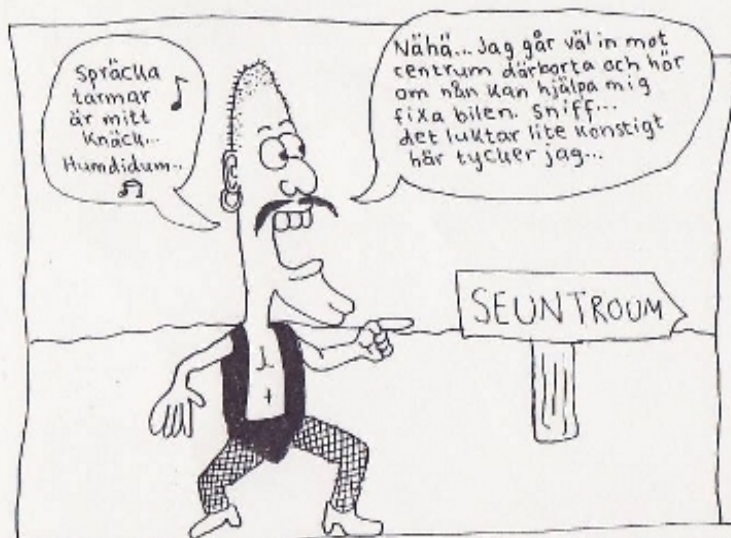 Spräcka
tarmar
är mitt
knäck...
Humdidum..
Nähä... Jag går väl in mot
centrum därborta och hör
om nån kan hjälpa mig
fixa bilen. Sniff...
det luktar lite konstigt
här tycker jag...
SEUNTROUM